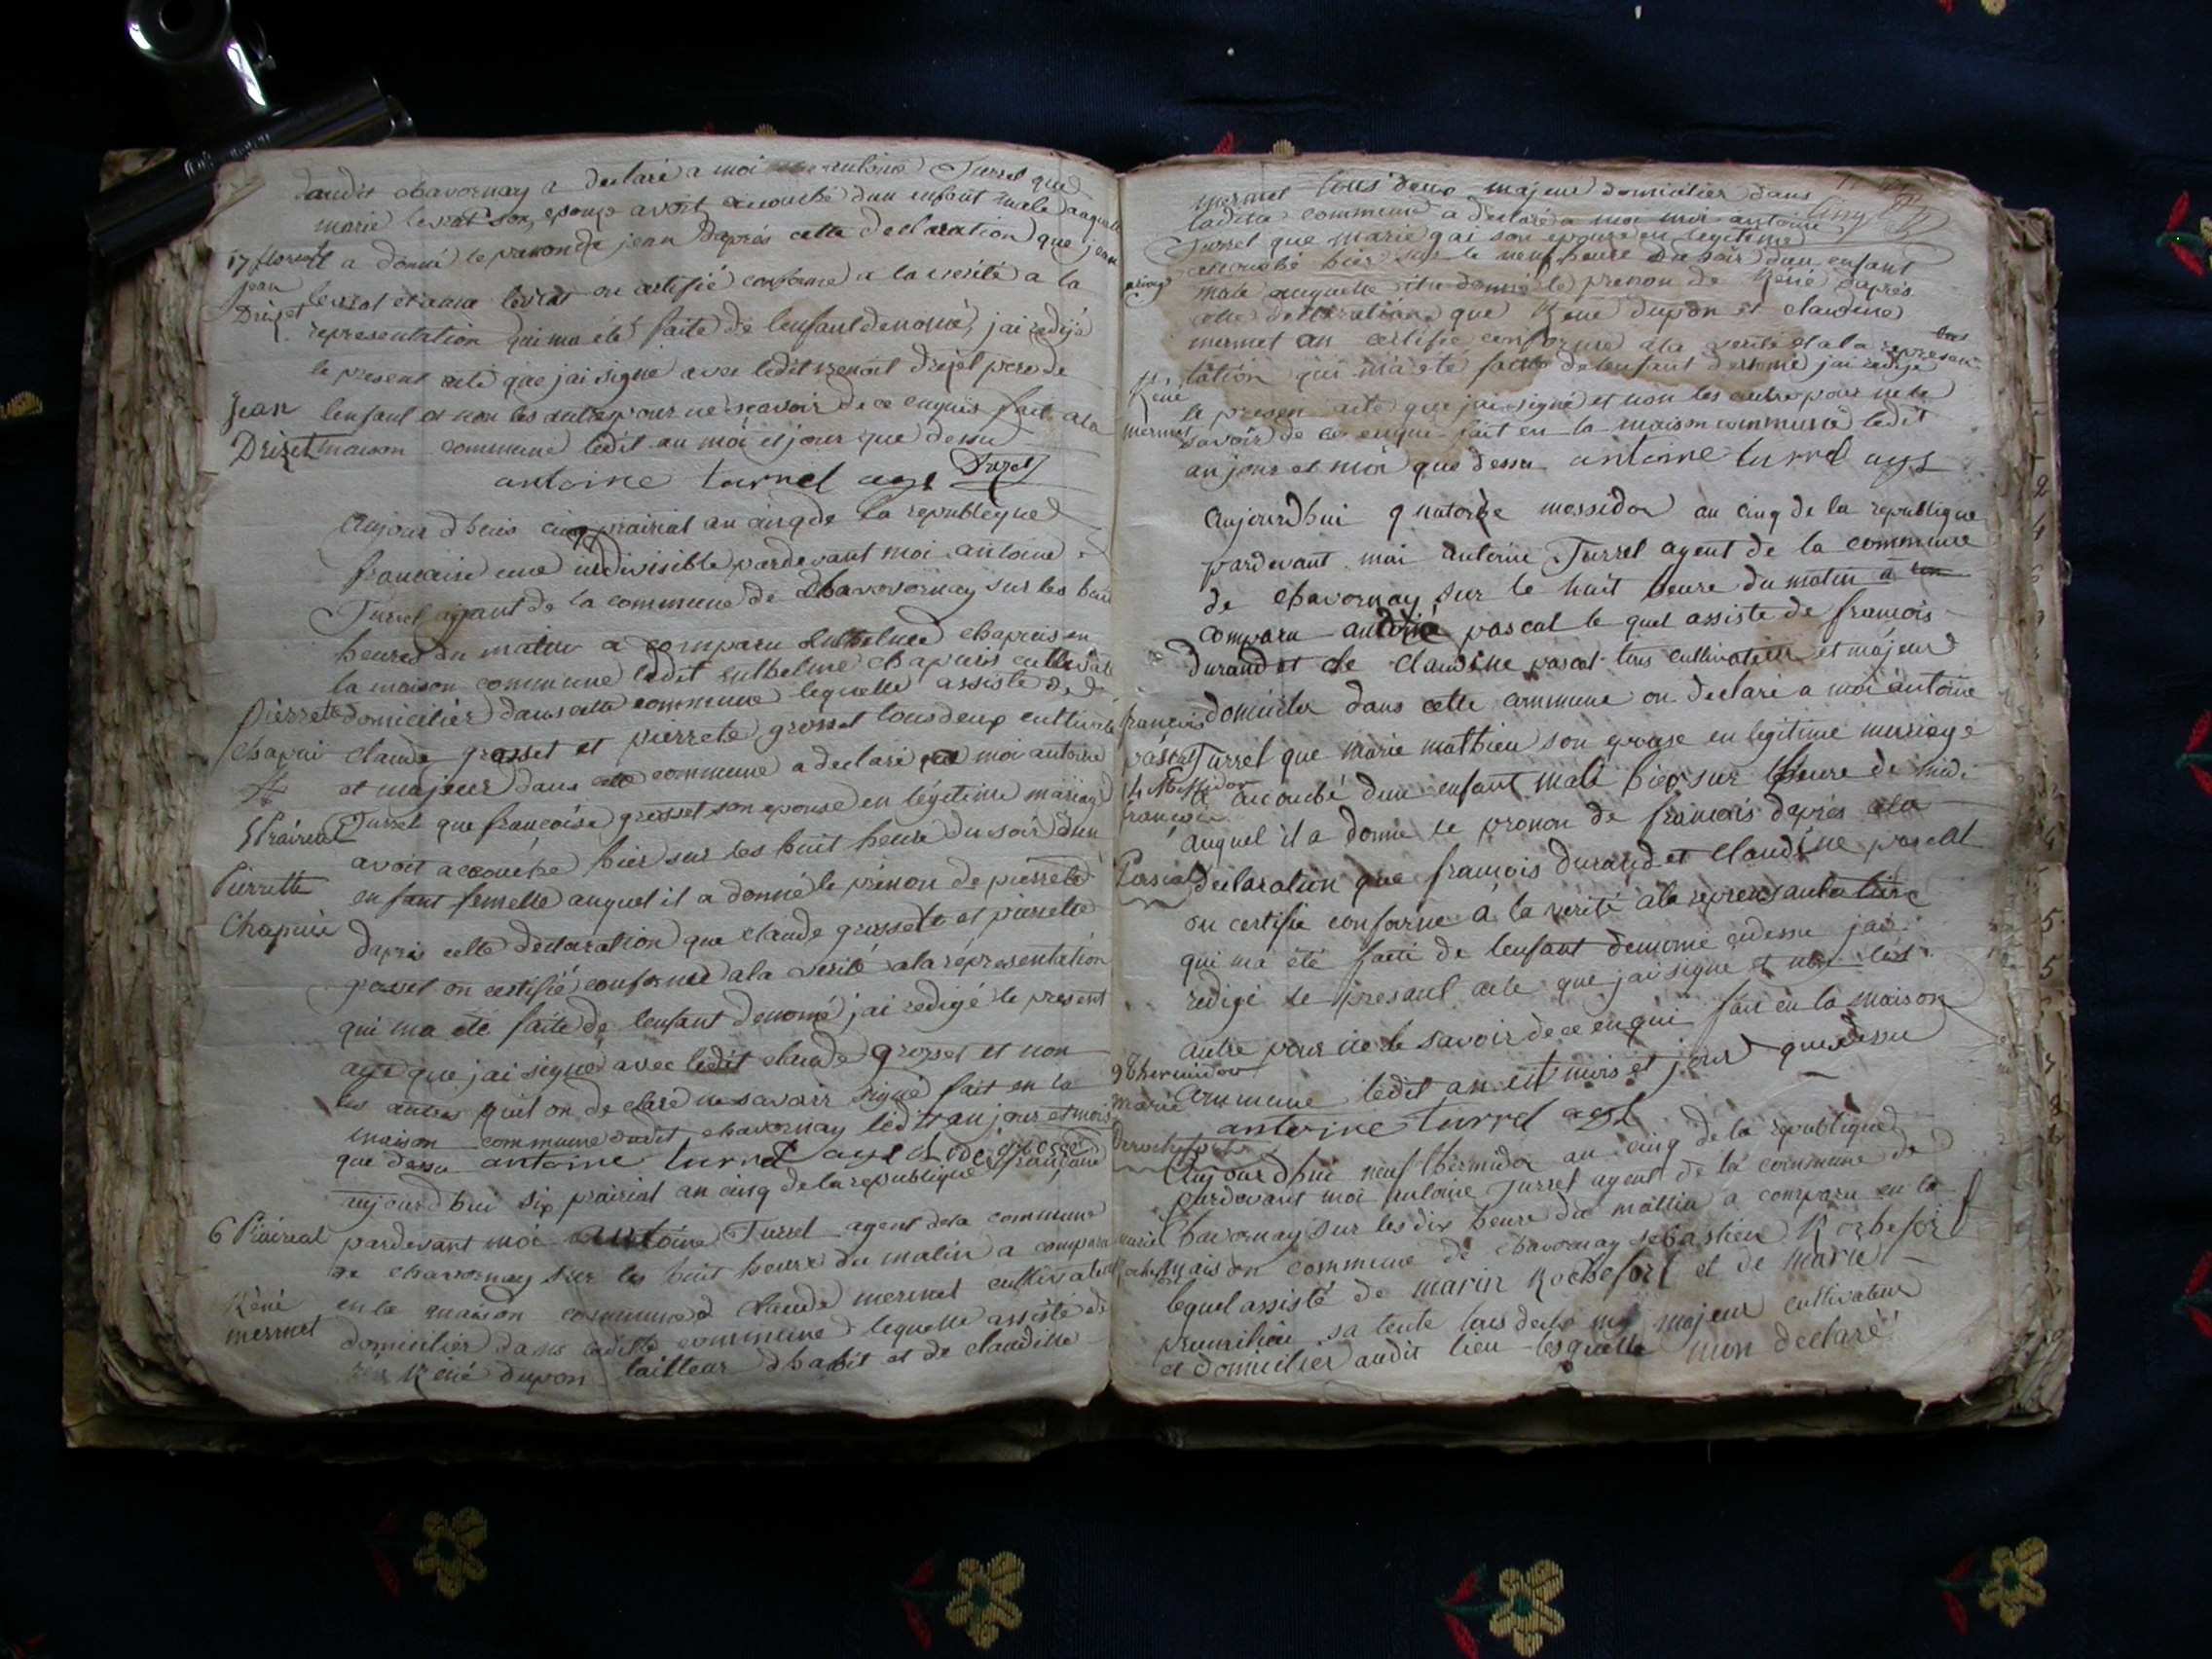 dudit chavornay a declaré a moi antoine Turrel que
marie levrat son epouse avoit acouché dun enfant male auquel
17 floreal
il a donné le prenon de jean daprés cette declaration que jean
jean
Drizet
levrat et anne levrat on certifié conforme a la verité a la
representation qui ma été faite de lenfant denomé, jai redijé
le present acte que jai signé avec ledit benoit Drizet pere de
Jean
lenfant et non les autre pour ne scavoir de ce enquis fait a la
Drizet
maison commune ledit an moi et jour que dessu
antoine turrel agt Drizet
aujour dhuis cinq prairial an cinq de la republeque
francaise une indivisible pardevant moi antoine
Turrel agant de la commune de chavornay sur les huit
heures du matin a comparu anthelme chapuis en
la maison commune ledit anthelme chapuis cultivate
pierrete
domicilier dans cette commune lequelle assisté de
chapui
claude grosset et pierrete grosset tous deux cultivate
et majeur dans cette commune a declaré a moi antoine
Turrel que francoise grosset son epouse en légitime mariage
5 Prairéal
avoit accouché hier sur les huit heure du soir dun
Pierrette
enfant femelle auquel il a donné le prénon de pierrete
Chapuis
daprés cette declaration que claude grosset et pierrette
grosset on certifié conforme a la verité a la répresentation
qui ma été faite de lenfant denomé jai redigé le present
acte que jai signé avec ledit claude grosset et non
les autres quil on declaré ne savoir signé fait en la
maison commune dudit chavornay ledit an jour et mois
que dessu antoine turrel agt clode grosset
aujourdhui six prairial an cinq de la republique française
6 Prairéal
pardevant moi antoine Turrel agent de la commune
de chavornay sur les huit heure du matin a comparu
Réné
en la maison commune claude mermet cultivateur
mermet
domicilier dans ladite commune lequelle assisté de
Réné dupon tailleur dhabit et de claudine
mermet tous deux majeur domicilier dans
ladite commune a declaré a moi antoine
Turrel que marie gai son epouse en legitime
mariage
accouché hier sur le neuf heure du soir dun enfant
male auquelle il a donné le prenon de Réné daprés
cette declaration que Réné dupon et claudine
mermet on certifié conforme a la verité et a la represen
tation qui ma été faite de lenfant denomé jai redigé
Réné
le presen acte que jai signé et non les autre pour ne le
mermet
savoir de ce enquis fait en la maison commune ledit
an jour et moi que dessu antoine turrel agt
aujourdhui quatorze messidor an cinq de la republique
pardevant moi antoine Turrel agent de la commune
de chavornay sur le huit heure du matin a
comparu pascal le quel assiste de francois
durand et de claudine pascal tous cultivateur et majeur
domicilier dans cette commune on declaré a moi antoine
francois
pascal
Turrel que marie mathieu son epouse en legitime mariage
14 Messidor
a acouché dun enfant male hier sur lheure de midi
françois
auquel il a donné le pronon de francois daprés cela
Pascal
declaration que francois durand et claudine pascal
on certifie conforme a la verité a la
qui ma été faite de lenfant denomé cidessu jai
redigé le presant acte que jai signé et non les
autre pour ne le savoir de ce enqui fait en la maison
9 thermidor
commune ledit an mois et jour que dessu
marie
antoine turrel agt
aujourdhui neuf thermidor an cinq de la republique
pardevant moi antoine Turrel agent de la commune de
chavornay sur les dix heure du mattin a comparu en la
maison commune de chavornay sebastien Rochefort
lequel assisté de marin Rochefort et de marie
sa tente tous deux majeur cultivateur
et domicilier audit lieu lesquelle mon declaré